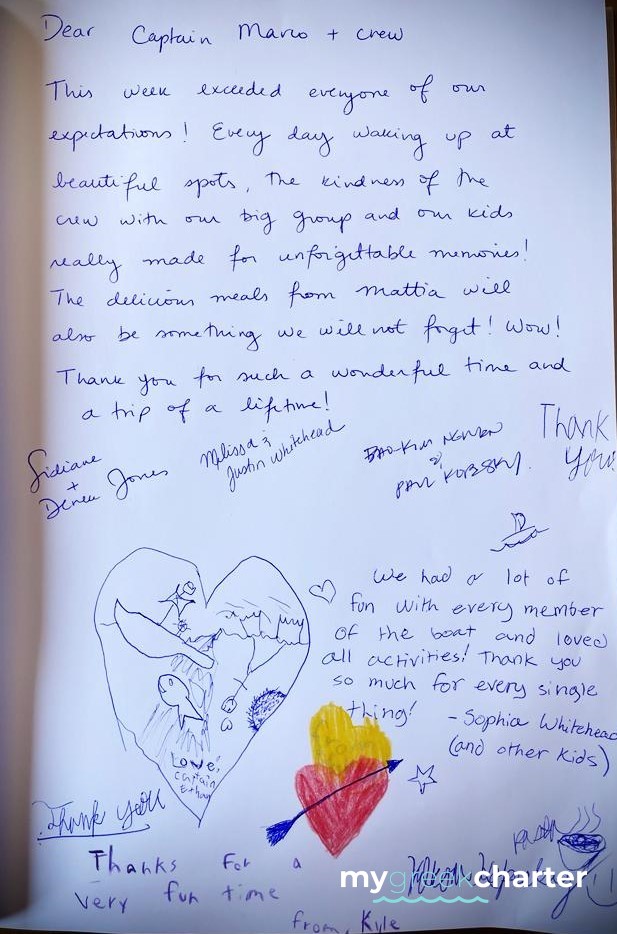 Dear Captain Marco + crew
This week exceeded everyone of our
expectations! Every day waking up at
beautiful spots, the kindness of the
crew with our big group and our kids
really made for unforgettable memories!
The delicious meals from Mattia will
also be something we will not forget! Wow!
Thank you for such a wonderful time and
a trip of a lifetime!
+
Jones
Melissa &
Justin Whitehead
Thank
You!
We had a lot of
fun with every member
of the boat and loved
all activities! Thank you
so much for every single
thing!
- Sophia Whitehead
(and other kids)
Love,
Captain
Ethan
Thank you
Thanks for a
very fun time
from, Kyle
mygreekcharter